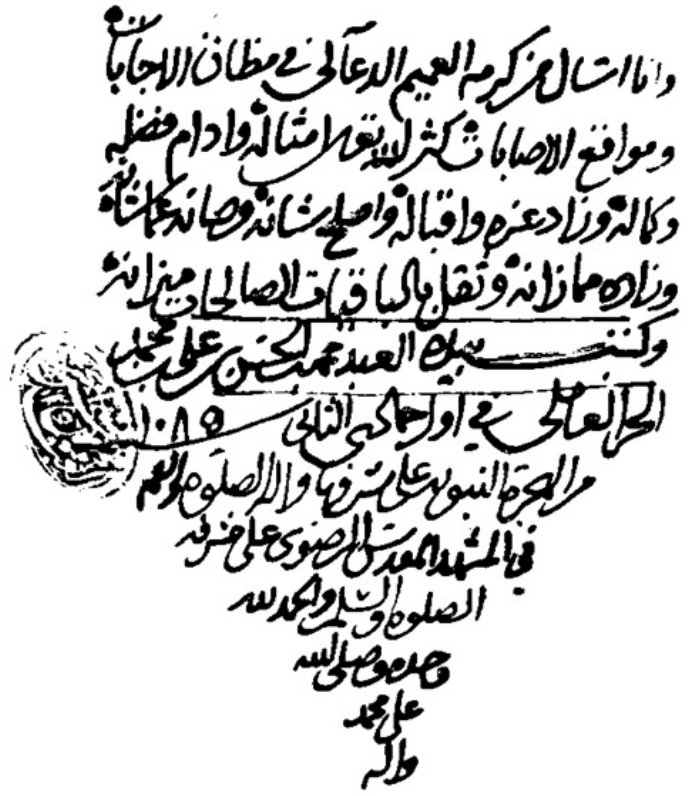 وانا اسال من كرمه العميم الدعآ لي في مظان الاجابات
ومواقع الاصابات كثر الله تعالى امثاله وادام فضله
وكماله وزاد عزه واقباله واصلح شانه وصانه عما شانه
وزاده مما زانه وثقل بالباقيات الصالحات ميزانه
وكتب بيده العبد محمد بن الحسن بن علي بن محمد
الحر العاملي في اول جمادى الثاني ١٠٨٥
من الهجرة النبويه على مشرفها واله الصلوة والسلم
في المشهد المقدس الرضوي على مشرفه
الصلوة والسلم والحمد لله
وحده وصلى الله
على محمد
واله